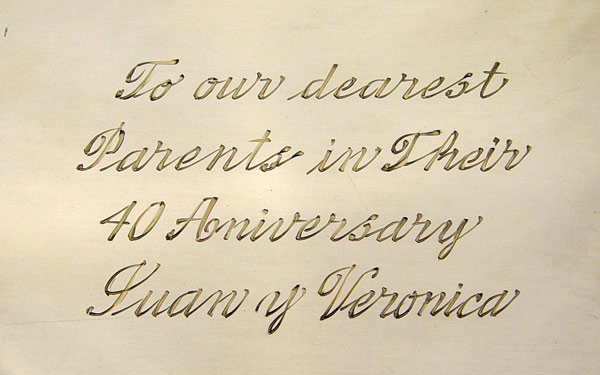 To our dearest
Parents in Their
40 Aniversary
Juan y Veronica